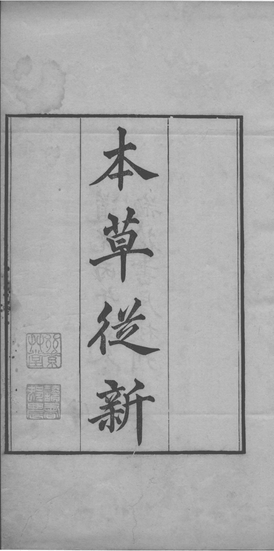 本草從新